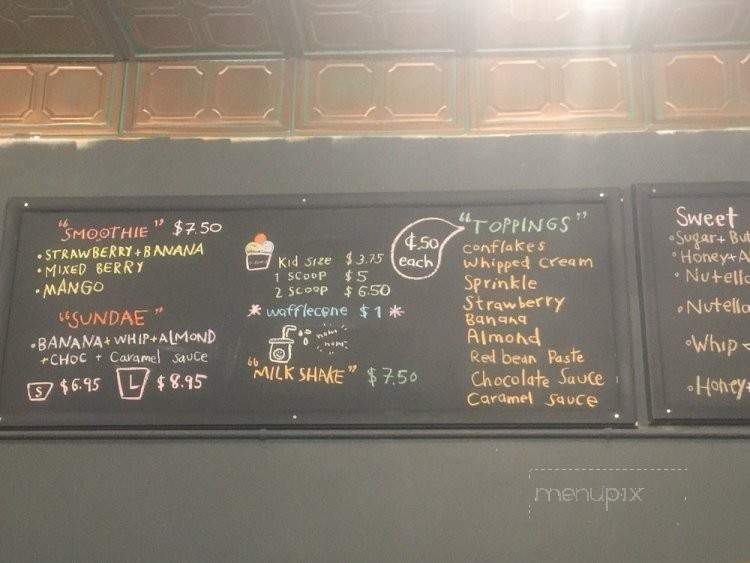 "SMOOTHIE" $7.50
• STRAWBERRY + BANANA
• MIXED BERRY
• MANGO
"SUNDAE"
• BANANA + WHIP + ALMOND
+ CHOC + Caramel sauce
S $6.95 L $8.95
Kid size $3.75
1 scoop $5
2 scoop $6.50
* wafflecone $1 *
"MILK SHAKE" $7.50
¢.50
each
"TOPPINGS"
conflakes
whipped cream
Sprinkle
Strawberry
Banana
Almond
Red bean Paste
Chocolate Sauce
Caramel sauce
Sweet
• Sugar + But
• Honey + A
• Nutella
• Nutella
• Whip
• Honey +
menupix